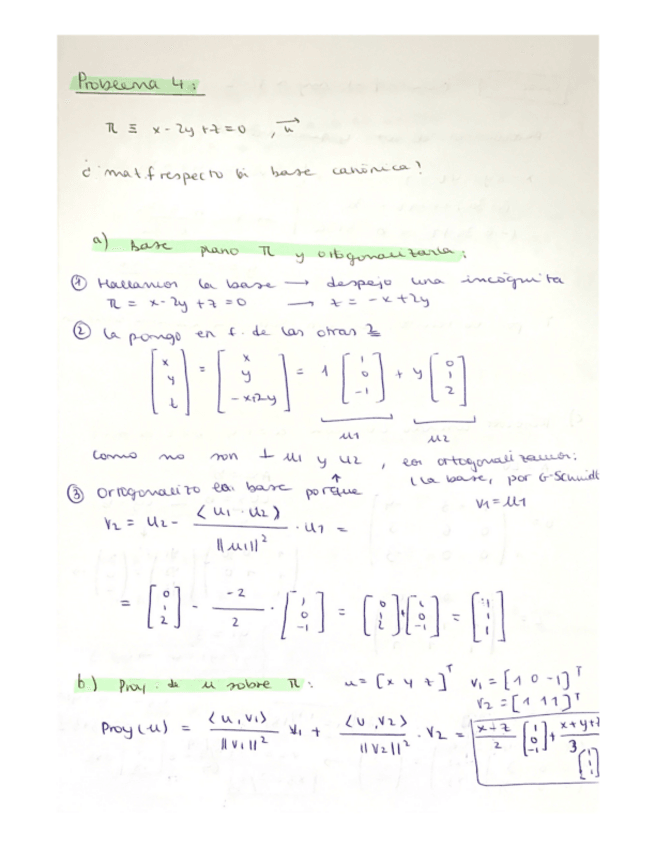 Problema 4:
π ≡ x-2y+z=0 , u⃗
¿ mat f respecto bi base canónica!
a) Base plano π y ortogonalizarla:
① Hallamos la base → despejo una incógnita
π = x-2y+z=0 → z = -x+2y
② La pongo en f. de las otras 2
[x y z] = [x y -x+2y] = 1 [1 0 -1] + y [0 1 2]
u1 u2
como no son ⊥ u1 y u2 , los ortogonalizamos:
(la base, por G-Schmidt
③ Ortogonalizo la base porque
v1 = u1
v2 = u2 - <u1 · u2> / ||u1||² · u1 =
= [0 1 2] - -2/2 · [1 0 -1] = [0 1 2] + [1 0 -1] = [1 1 1]
b) Proy. de u sobre π: u = [x y z]ᵀ v1 = [1 0 -1]ᵀ
v2 = [1 1 1]ᵀ
Proy(u) = <u, v1> / ||v1||² v1 + <u, v2> / ||v2||² · v2 = x+z/2 [1 0 -1] + x+y+z/3 [1 1 1]